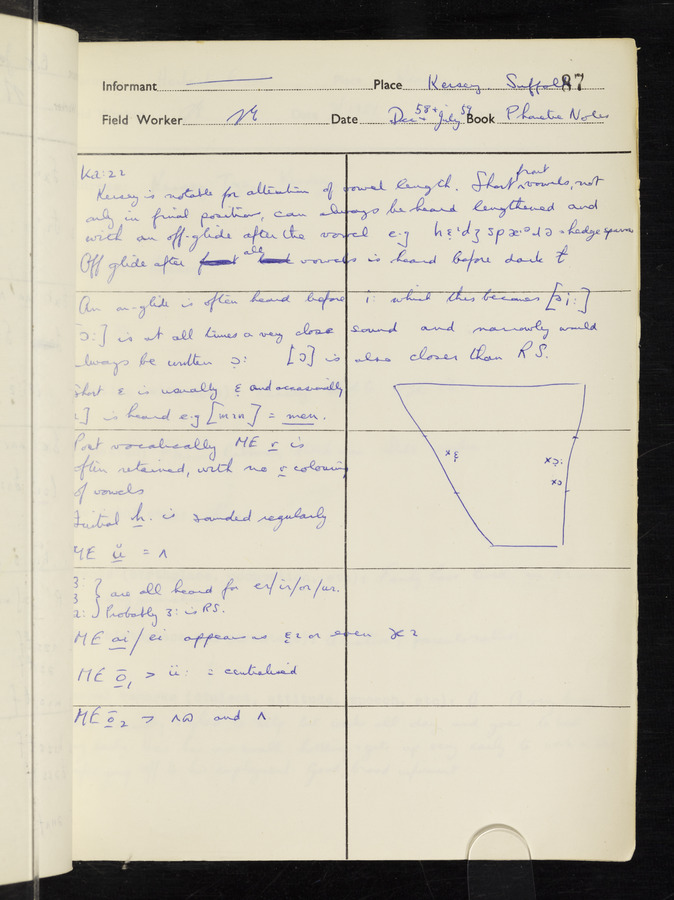 Informant ——— Place Kersey Suffolk 87
Field Worker Date Dec 58 + July 59 Book Phonetic Notes
Kersey is notable for alternation of vowel length. Short front vowels, not
only in final position, can always be heard lengthened and
with an off-glide after the vowel e.g. = hedge sparrow
Off glide after all vowels is heard before dark ɫ
An on-glide is often heard before i: which thus becomes [əi:]
[ɔ:] is at all times a very close sound and narrowly would
always be written ɔ̣: [ɔ] is also closer than R S.
Short ɛ is usually ɛ̣ and occasionally
] is heard e.g. [mɪn] = men.
Post vocalically ME r is
often retained, with no r colouring
of vowels
Initial h. is sounded regularly
ME ŭ = ʌ
×ɛ̣
×ɔ̣:
×ɔ
ɜ:
ɜ } are all heard for er/ir/or/ur.
ɑ: Probably ɜ: is RS.
ME ai/ei appears as ɛɪ or even æɪ
ME ō₁ > ü: = centralised
ME ō₂ > ʌɷ and ʌ